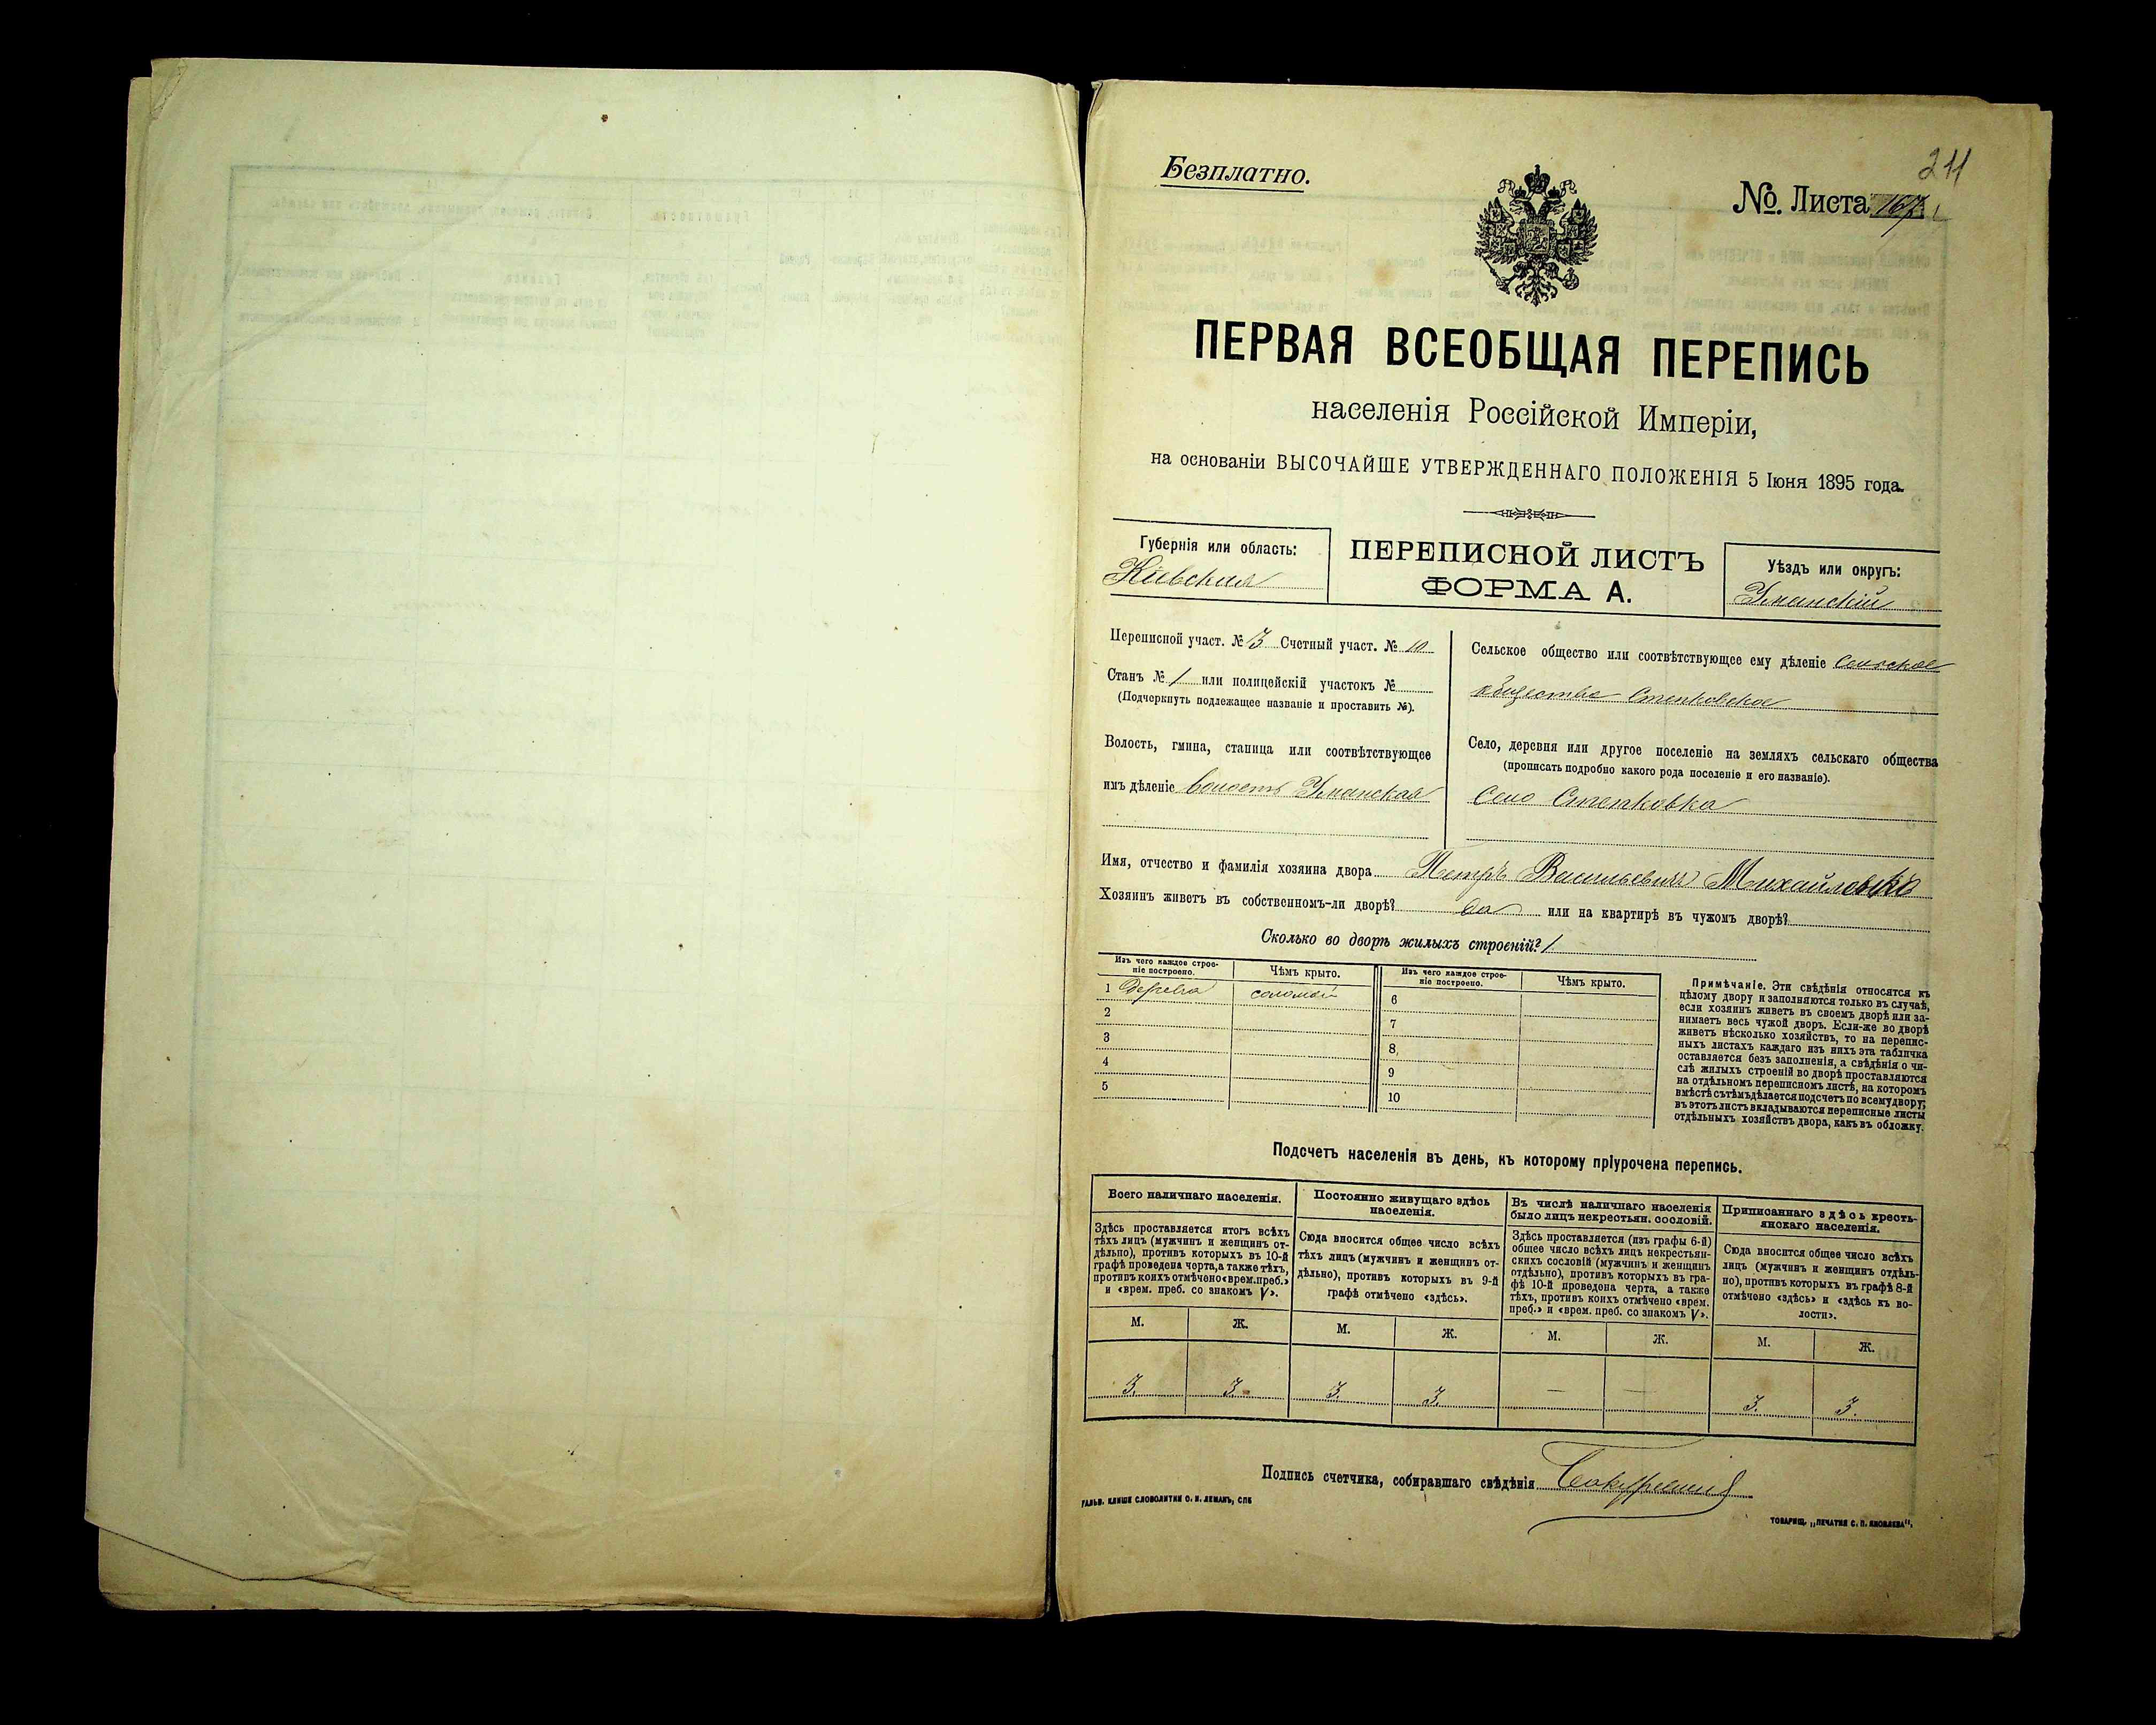 211
Безплатно.
№. Листа 167
ПЕРВАЯ ВСЕОБЩАЯ ПЕРЕПИСЬ
населенія Россійской Имперіи,
на основаніи ВЫСОЧАЙШЕ УТВЕРЖДЕННАГО ПОЛОЖЕНІЯ 5 Іюня 1895 года.
Губернія или область:
Кіевская
ПЕРЕПИСНОЙ ЛИСТЪ
ФОРМА А.
Уѣздъ или округъ:
Уманскій
Переписной участ. № 3 Счетный участ. № 10
Станъ № 1 или полицейскій участокъ №
(Подчеркнуть подлежащее названіе и проставить №).
Волость, гмина, станица или соотвѣтствующее
имъ дѣленіе волость Уманская
Сельское общество или соотвѣтствующее ему дѣленіе сельское
общество Степковское
Село, деревня или другое поселеніе на земляхъ сельскаго общества
(прописать подробно какого рода поселеніе и его названіе).
село Степковка
Имя, отчество и фамилія хозяина двора Петръ Васильевичъ
Хозяинъ живетъ въ собственномъ-ли дворѣ? да или на квартирѣ въ чужомъ дворѣ?
Сколько во дворѣ жилыхъ строеній? 1
Изъ чего каждое строе-
ніе построено.
Чѣмъ крыто.
Изъ чего каждое строе-
ніе построено.
Чѣмъ крыто.
1 дерева соломой
2
3
4
5
6
7
8
9
10
Примѣчаніе. Эти свѣдѣнія относятся къ
цѣлому двору и заполняются только въ случаѣ,
если хозяинъ живетъ въ своемъ дворѣ или за-
нимаетъ весь чужой дворъ. Если-же во дворѣ
живетъ нѣсколько хозяйствъ, то на перепис-
ныхъ листахъ каждаго изъ нихъ эта табличка
оставляется безъ заполненія, а свѣдѣнія о чи-
слѣ жилыхъ строеній во дворѣ проставляются
на отдѣльномъ переписномъ листѣ, на которомъ
вмѣстѣ съ тѣмъ дѣлается подсчетъ по всему двору;
въ этотъ листъ вкладываются переписные листы
отдѣльныхъ хозяйствъ двора, какъ въ обложку.
Подсчетъ населенія въ день, къ которому пріурочена перепись.
Всего наличнаго населенія.
Здѣсь проставляется итогъ всѣхъ
тѣхъ лицъ (мужчинъ и женщинъ от-
дѣльно), противъ которыхъ въ 10-й
графѣ проведена черта, а также тѣхъ,
противъ коихъ отмѣчено «врем. преб.»
и «врем. преб. со знакомъ V».
М. Ж.
3. 3.
Постоянно живущаго здѣсь
населенія.
Сюда вносится общее число всѣхъ
тѣхъ лицъ (мужчинъ и женщинъ от-
дѣльно), противъ которыхъ въ 9-й
графѣ отмѣчено «здѣсь».
М. Ж.
3. 3.
Въ числѣ наличнаго населенія
было лицъ некрестьян. сословій.
Здѣсь проставляется (изъ графы 6-й)
общее число всѣхъ лицъ некрестьян-
скихъ сословій (мужчинъ и женщинъ
отдѣльно), противъ которыхъ въ гра-
фѣ 10-й проведена черта, а также
тѣхъ, противъ коихъ отмѣчено «врем.
преб.» и «врем. преб. со знакомъ V».
М. Ж.
— —
Приписаннаго здѣсь кресть-
янскаго населенія.
Сюда вносится общее число всѣхъ
лицъ (мужчинъ и женщинъ отдѣль-
но), противъ которыхъ въ графѣ 8-й
отмѣчено «здѣсь» и «здѣсь къ во-
лости».
М. Ж.
3. 3.
Подпись счетчика, собиравшаго свѣдѣнія
ГАЛЬВ. КЛИШЕ СЛОВОЛИТНИ О. И. ЛЕМАНЪ, СПБ
ТОВАРИЩ. „ПЕЧАТНЯ С. П. ЯКОВЛЕВА“.